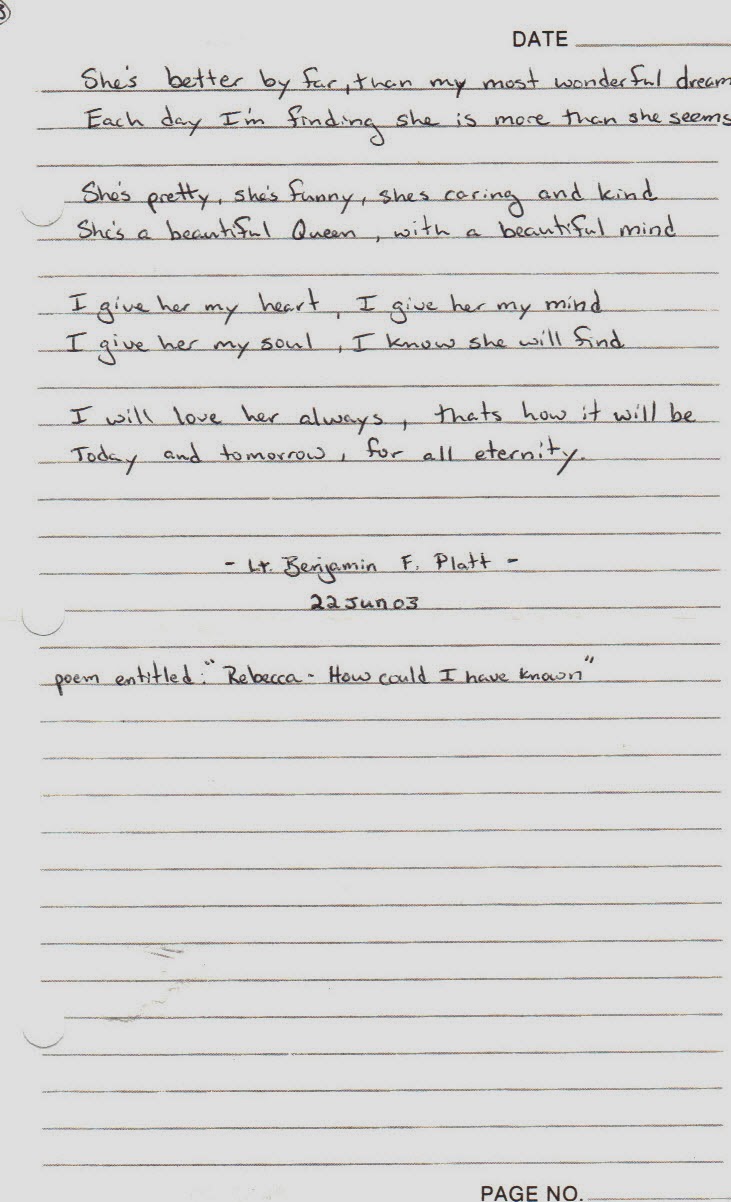 DATE
She's better by far, than my most wonderful dream
Each day I'm finding she is more than she seems
She's pretty, she's funny, shes caring and kind
She's a beautiful Queen, with a beautiful mind
I give her my heart, I give her my mind
I give her my soul, I know she will find
I will love her always, thats how it will be
Today and tomorrow, for all eternity.
- Lt. Benjamin F. Platt -
22 Jun 03
poem entitled: "Rebecca - How could I have known"
PAGE NO.